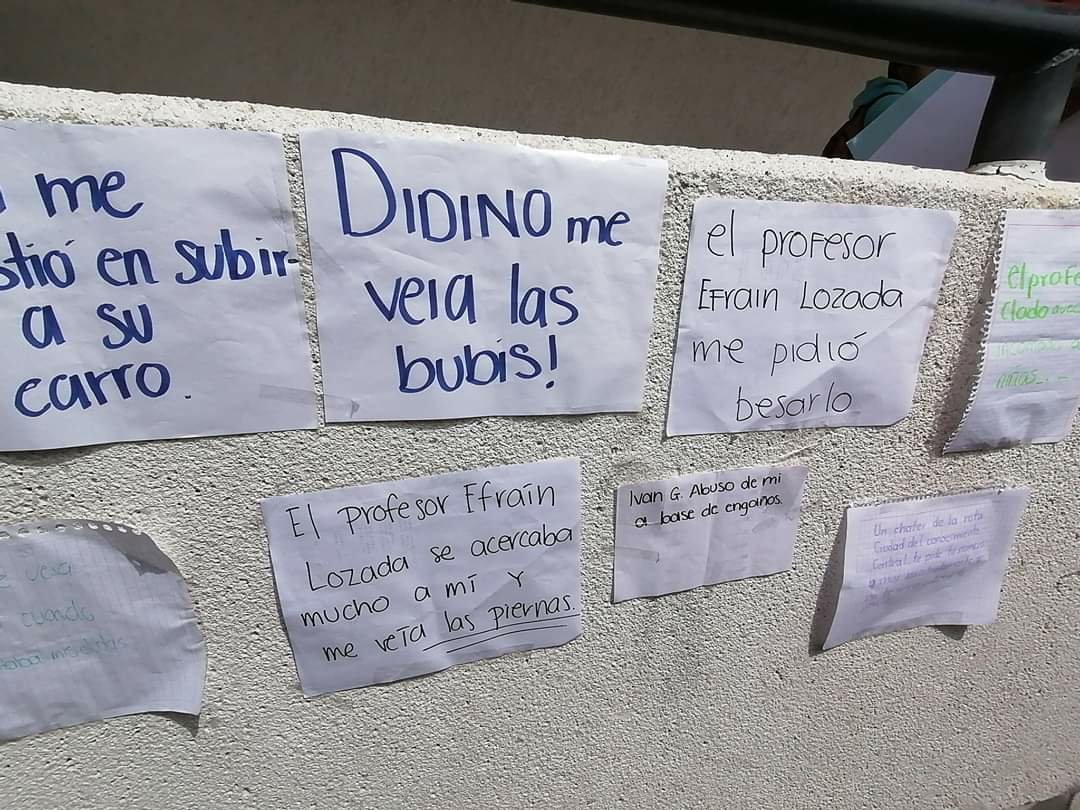 me
en subir-
a su
carro.
DIDINO me
veia las
bubis!
el profesor
Efrain Lozada
me pidió
besarlo
niñas...
cuando
El profesor Efraín
Lozada se acercaba
mucho a mí y
me veía las piernas.
Ivan G. Abuso de mi
a base de engaños.
Un chofer de la ruta
Ciudad del conocimiento
Central te pide tu numero